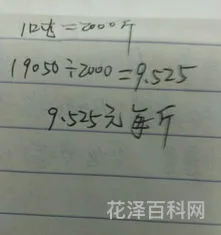 1吨=2000斤
19050÷2000=9.525
9.525元每斤
花泽百科网